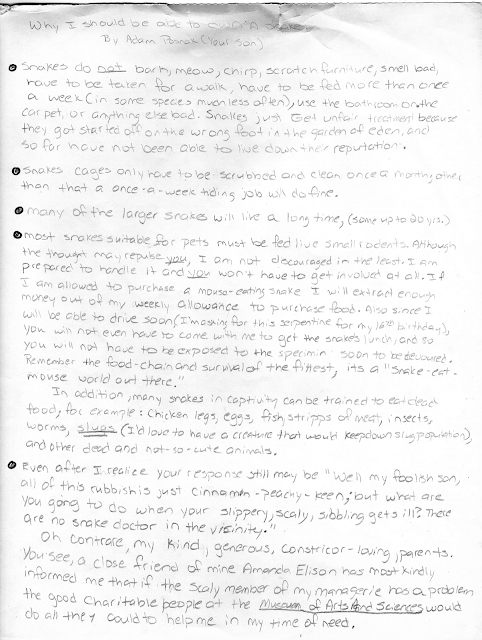 Why I should be able to own a snake
By Adam (Your son)
Snakes do not bark, meow, chirp, scratch furniture, smell bad,
have to be taken for a walk, have to be fed more than once
a week (in some species much less often), use the bathroom on the
carpet, or anything else bad. Snakes just Get unfair treatment because
they got started off on the wrong foot in the garden of eden, and
so far have not been able to live down their reputation.
Snakes cages only have to be scrubbed and clean once a month, other
than that a once-a-week tiding job will do fine.
many of the larger snakes will like a long time, (some up to 20 yrs.)
most snakes suitable for pets must be fed live small rodents. Although
the thought may repulse you, I am not discouraged in the least. I am
prepared to handle it and you won't have to get involved at all. If
I am allowed to purchase a mouse-eating snake I will extract enough
money out of my weekly allowance to purchase food. Also since I
will be able to drive soon, (I'm asking for this serpentine for my 16th birthday),
you will not even have to come with me to get the snake's lunch, and so
you will not have to be exposed to the specimin soon to be devoured.
Remember the food-chain and survival of the fittest, its a "snake-eat-
mouse world out there."
In addition, many snakes in captivity can be trained to eat dead
food, for example: Chicken legs, eggs, fish, stripps of meat, insects,
worms, slugs (I'd love to have a creature that would keep down slug population)
and other dead and not-so-cute animals.
Even after I realize your response still may be "Well my foolish son,
all of this rubbish is just cinnamon-peachy-keen, but what are
you gong to do when your slippery, scaly, sibbling gets ill? There
are no snake doctor in the visinity."
Oh contrare, my kind, generous, constricor-loving, parents.
You see, a close friend of mine Amanda Elison has most kindly
informed me that if the scaly member of my managerie has a problem
the good Charitable people at the Museum of Arts And Sciences would
do all they could to help me in my time of need.